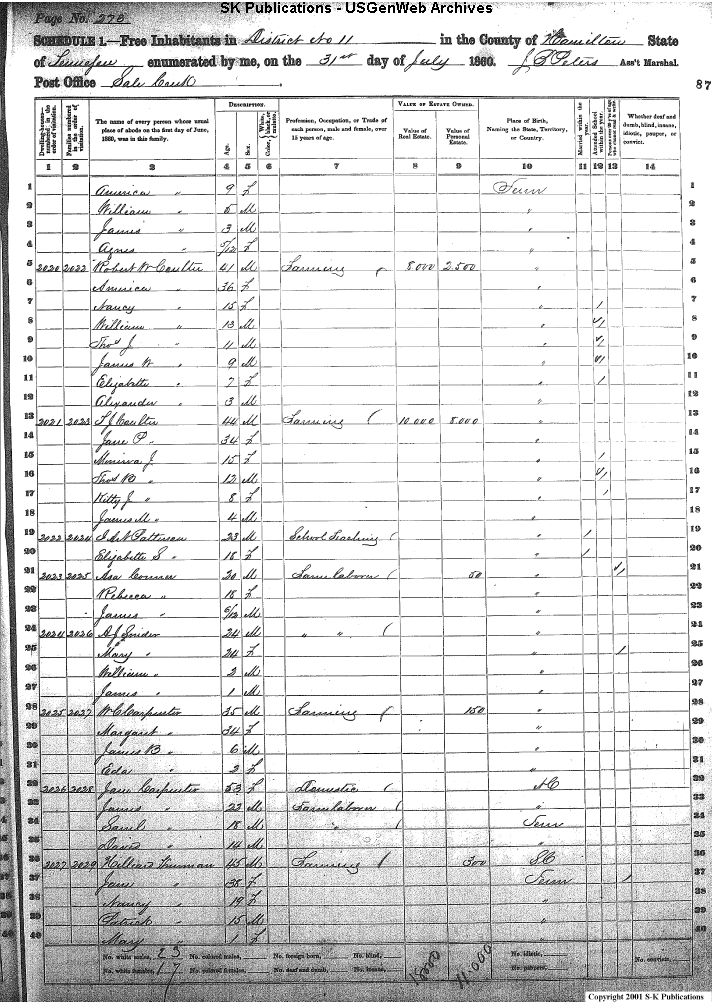 SK Publications - USGenWeb Archives
Page No. 278
SCHEDULE 1.—Free Inhabitants in District No 11 in the County of Hamilton State
of Tennessee enumerated by me, on the 31st day of July 1860. Ass't Marshal.
Post Office Sale Creek
87
Dwelling-houses—numbered in the order of visitation. Families numbered in the order of visitation. The name of every person whose usual place of abode on the first day of June, 1860, was in this family. DESCRIPTION. Age. Sex. Color, White, black, or mulatto. Profession, Occupation, or Trade of each person, male and female, over 15 years of age. VALUE OF ESTATE OWNED. Value of Real Estate. Value of Personal Estate. Place of Birth, Naming the State, Territory, or Country. Married within the year. Attended School within the year. Whether deaf and dumb, blind, insane, idiotic, pauper, or convict.
1 2 3 4 5 6 7 8 9 10 11 12 13 14
1 America " 9 F Tenn 1
2 William " 5 M " 2
3 James " 3 M " 3
4 Agnes " F " 4
5 2020 2022 Robert W Coulter 41 M Farming 8.000 2.500 " 5
6 America " 36 F " 6
7 Nancy " 15 F " 1 7
8 William " 13 M " 1 8
9 Thos J. " 11 M " 1 9
10 James W " 9 M " 1 10
11 Elizabeth " 7 F " 1 11
12 Alexander " 3 M " 12
13 2021 2023 T J Coulter 44 M Farming 10.000 8.000 " 13
14 Jane P. " 34 F " 14
15 Minerva J. 15 F " 1 15
16 Thos B " 12 M " 1 16
17 Kitty J " 8 F " 1 17
18 James M " 4 M " 18
19 2022 2024 Patterson 23 M School Teaching " 1 19
20 Elizabeth S " 18 F " 1 20
21 2023 2025 Asa Conner 20 M Farm laborer 50 " 1 21
22 Rebecca " 18 F " 22
23 James " M " 23
24 2024 2026 A J Snider 24 M " " " 24
25 Mary " 24 F " 1 25
26 William " 2 M " 26
27 James " 1 M " 27
28 2025 2027 W C Carpenter 35 M Farming 150 " 28
29 Margaret " 34 F " 29
30 James B " 6 M " 30
31 Eda " 2 F " 31
32 2026 2028 Jane Carpenter 53 F Domestic NC 32
33 James " 22 M Farm laborer " 33
34 Saml " 18 M " Tenn 34
35 David " 14 M " 35
36 2027 2029 Hilliard 45 M Farming 300 SC 36
37 Jane " 38 F Tenn 1 37
38 Nancy " 19 F " 38
39 Patrick " 15 M " 39
40 Mary " 1 F " 40
No. white males, 23 No. colored males, No. foreign born, No. blind, 18000 11.000 No. idiotic, No. convicts,
No. white females, 17 No. colored females, No. deaf and dumb, No. insane, No. paupers,
Copyright 2001 S-K Publications